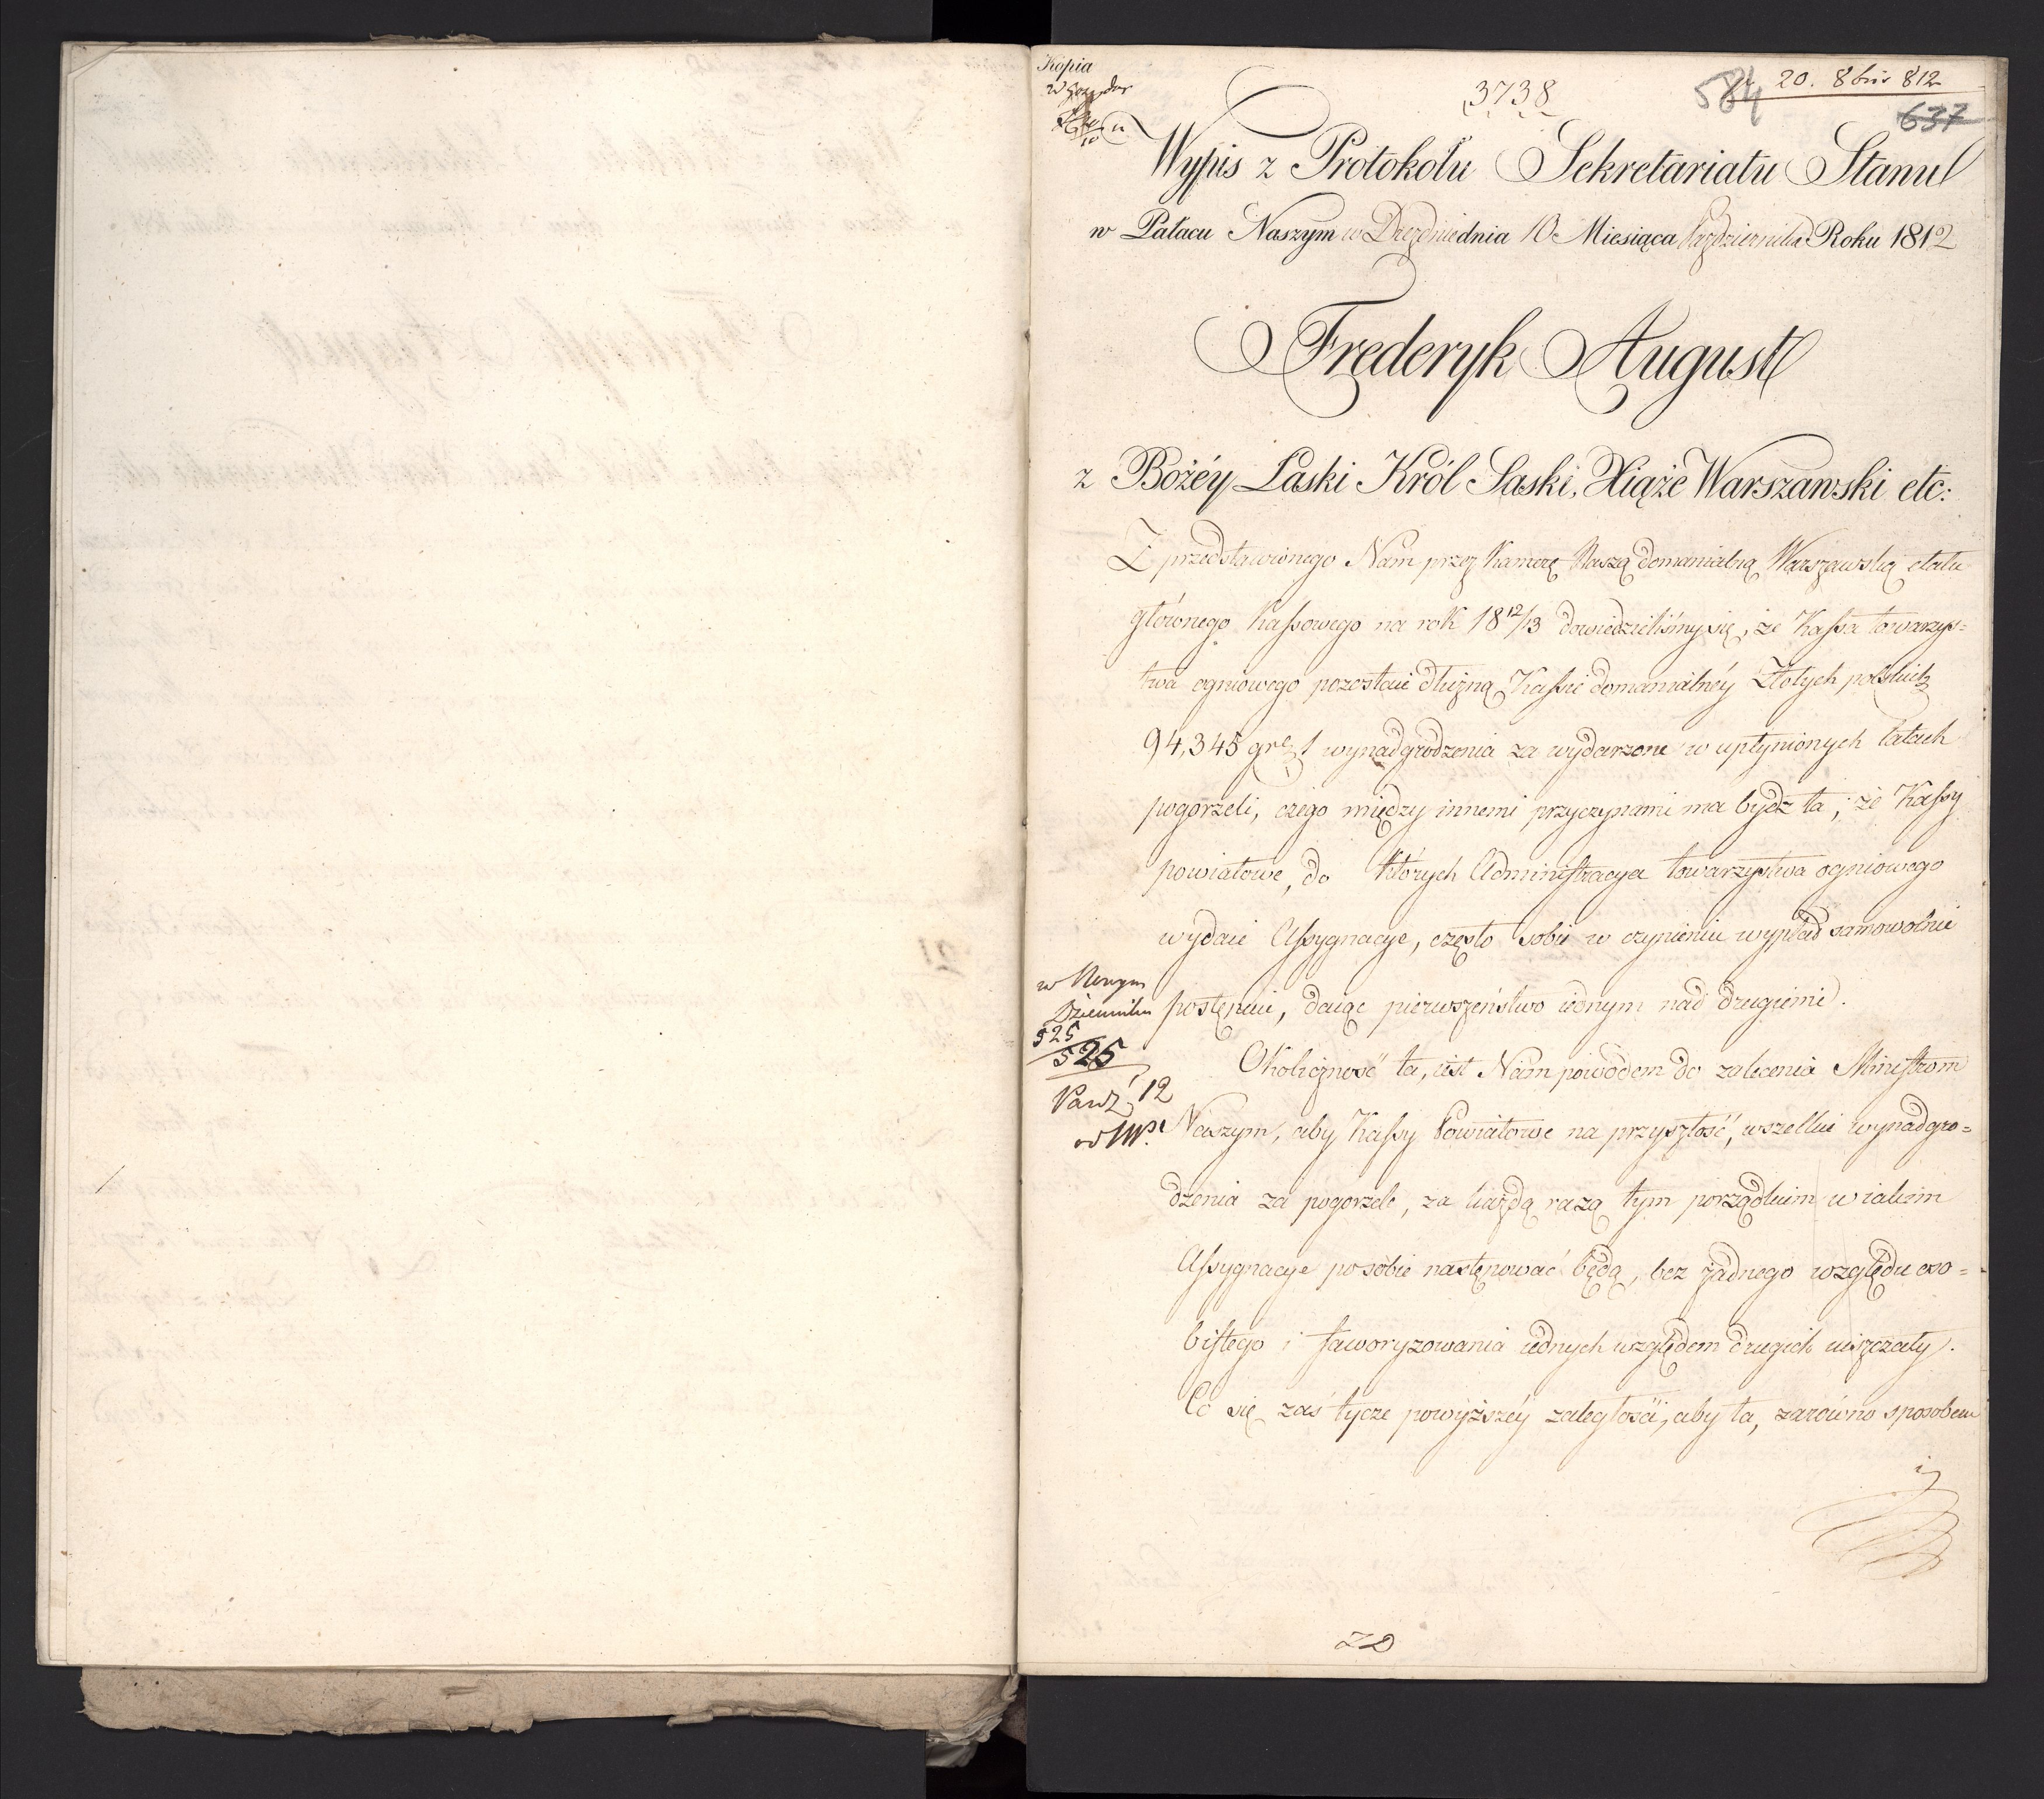 Kopia
3738
584
20. 8bris 812
637
Wypis z Protokołu Sekretariatu Stanu
w Pałacu Naszym w Dreznie dnia 10 Miesiąca Października Roku 1812
Frederyk August
z Bożéy Łaski Król Saski, Xiąże Warszawski etc:
Z przedstawionego Nam przez Kamerę Naszą domanialną Warszawską etatu
głównego Kassowego na rok 18 12/13 dowiedzieliśmy się, że Kassa towarzys=
twa ogniowego pozostaie dłużną Kassie domanialnéy Złotych polskich
94,345 gr 1 wynadgrodzenia za wydarzone w upłynionych latach
pogorzeli, czego między innemi przyczynami ma bydź ta, że Kassy
powiatowe, do których Administracya towarzystwa ogniowego
wydaie Assygnacye, często sobie w czynieniu wypłat samowolnie
postępuie, daiąc pierwszeństwo iednym nad drugiemi.
w Nowym
Dzienniku
525
525
Paźd. 12
Okoliczność ta, iest Nam powodem do zalecenia Ministrom
Naszym, aby Kassy Powiatowe na przyszłość, wszelkie wynadgro=
dzenia za pogorzele, za każdą razą tym porządkiem w iakim
Assygnacye po sobie następować będą, bez żadnego względu oso=
bistego i faworyzowania iednych względem drugich uiszczały.
Co się zaś tycze powyższéy zaległości, aby ta, zarówno sposobem
ZD